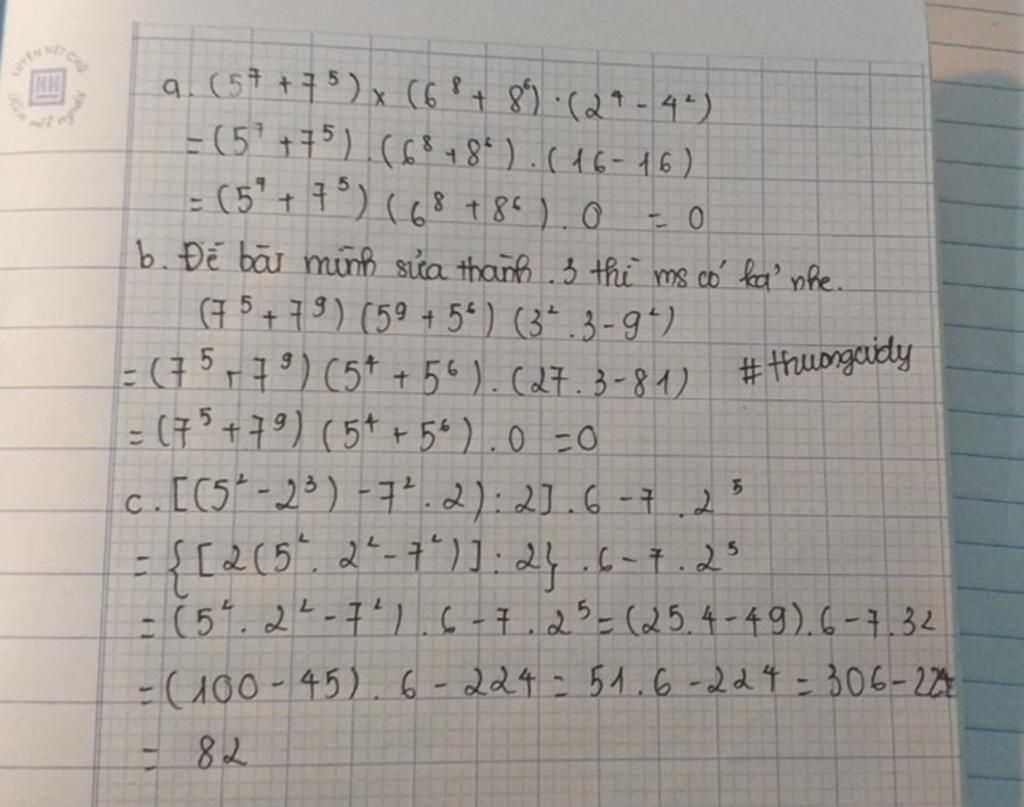 LUYỆN NÉT CHỮ
NH
Rèn nết người
a. (5⁷ + 7⁵) × (6⁸ + 8⁶) · (2⁴ - 4²)
= (5⁷ + 7⁵) . (6⁸ + 8⁶) . (16 - 16)
= (5⁷ + 7⁵) (6⁸ + 8⁶) . 0 = 0
b. Đề bài mình sửa thành . 3 thì ms có kq' nhe.
(7⁵ + 7⁹) (5⁹ + 5⁶) (3² . 3 - 9²)
= (7⁵ + 7⁹) (5⁴ + 5⁶) . (27 . 3 - 81) #thuongcuidy
= (7⁵ + 7⁹) (5⁴ + 5⁶) . 0 = 0
c. [(5² - 2³) - 7² . 2) : 2] . 6 - 7 . 2⁵
= {[2(5² . 2² - 7²)] : 2} . 6 - 7 . 2⁵
= (5² . 2² - 7²) . 6 - 7 . 2⁵ = (25.4 - 49) . 6 - 7.32
= (100 - 45) . 6 - 224 = 51.6 - 224 = 306 - 224
= 82